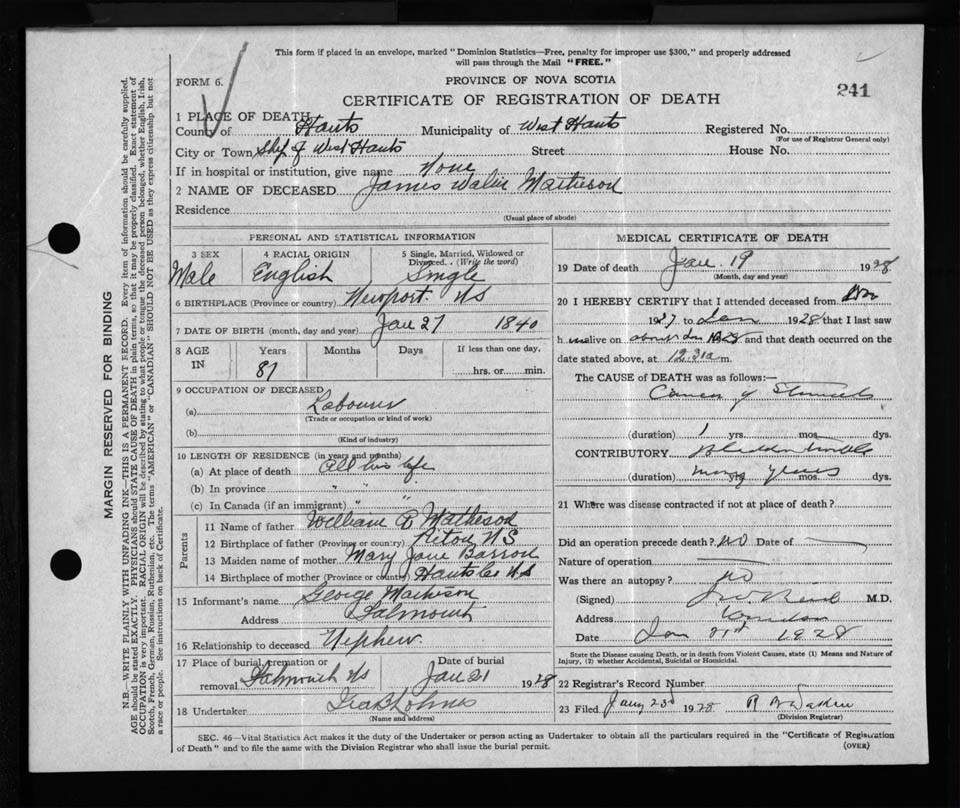 This form if placed in an envelope, marked "Dominion Statistics—Free, penalty for improper use $300," and properly addressed
will pass through the Mail "FREE."
FORM 6.
PROVINCE OF NOVA SCOTIA
241
CERTIFICATE OF REGISTRATION OF DEATH
1 PLACE OF DEATH
County of Hants Municipality of West Hants Registered No.
(For use of Registrar General only)
City or Town Shp of West Hants Street House No.
If in hospital or institution, give name None
2 NAME OF DECEASED James Matheson
Residence
(Usual place of abode)
PERSONAL AND STATISTICAL INFORMATION
3 SEX
Male
4 RACIAL ORIGIN
English
5 Single, Married, Widowed or
Divorced. . (Write the word)
Single
6 BIRTHPLACE (Province or country) Newport NS
7 DATE OF BIRTH (month, day and year) Jan 27 1840
8 AGE
IN
Years
87
Months
Days
If less than one day,
hrs. or min.
9 OCCUPATION OF DECEASED
(a) Labourer
(Trade or occupation or kind of work)
(b)
(Kind of industry)
10 LENGTH OF RESIDENCE (in years and months)
(a) At place of death All his life
(b) In province " "
(c) In Canada (if an immigrant) " "
Parents
11 Name of father William Matheson
12 Birthplace of father (Province or country) NS
13 Maiden name of mother Mary Jane
14 Birthplace of mother (Province or country) Hants Co NS
15 Informant's name George
Address Falmouth
16 Relationship to deceased Nephew
17 Place of burial, cremation or
removal Falmouth NS
Date of burial
Jan 21 1928
18 Undertaker
(Name and address)
MEDICAL CERTIFICATE OF DEATH
19 Date of death Jan. 19 1928
(Month, day and year)
20 I HEREBY CERTIFY that I attended deceased from
1927 to Jan 1928 that I last saw
h im alive on about and that death occurred on the
date stated above, at 12.31 a m.
The CAUSE of DEATH was as follows:—
Cancer of Stomach
(duration) 1 yrs. mos. dys.
CONTRIBUTORY Bladder trouble
(duration) many years yrs. mos. dys.
21 Where was disease contracted if not at place of death?
Did an operation precede death? no Date of
Nature of operation
Was there an autopsy? no
(Signed) M.D.
Address Windsor
Date Jan 21st 1928
State the Disease causing Death, or in death from Violent Causes, state (1) Means and Nature of
Injury, (2) whether Accidental, Suicidal or Homicidal.
22 Registrar's Record Number
23 Filed 1928
(Division Registrar)
SEC. 46—Vital Statistics Act makes it the duty of the Undertaker or person acting as Undertaker to obtain all the particulars required in the "Certificate of Registration
of Death" and to file the same with the Division Registrar who shall issue the burial permit.
(OVER)
MARGIN RESERVED FOR BINDING
N.B.—WRITE PLAINLY WITH UNFADING INK—THIS IS A PERMANENT RECORD. Every item of information should be carefully supplied.
AGE should be stated EXACTLY. PHYSICIANS should STATE CAUSE OF DEATH in plain terms, so that it may be properly classified. Exact statement of
OCCUPATION is very important. RACIAL ORIGIN will be described by stating to what people or tongue the deceased person belonged, whether English, Irish,
Scotch, French, German, Russian, Ruthenian, etc. The terms "AMERICAN" or "CANADIAN" SHOULD NOT BE USED as they express citizenship but not
a race or people. See instructions on back of Certificate.